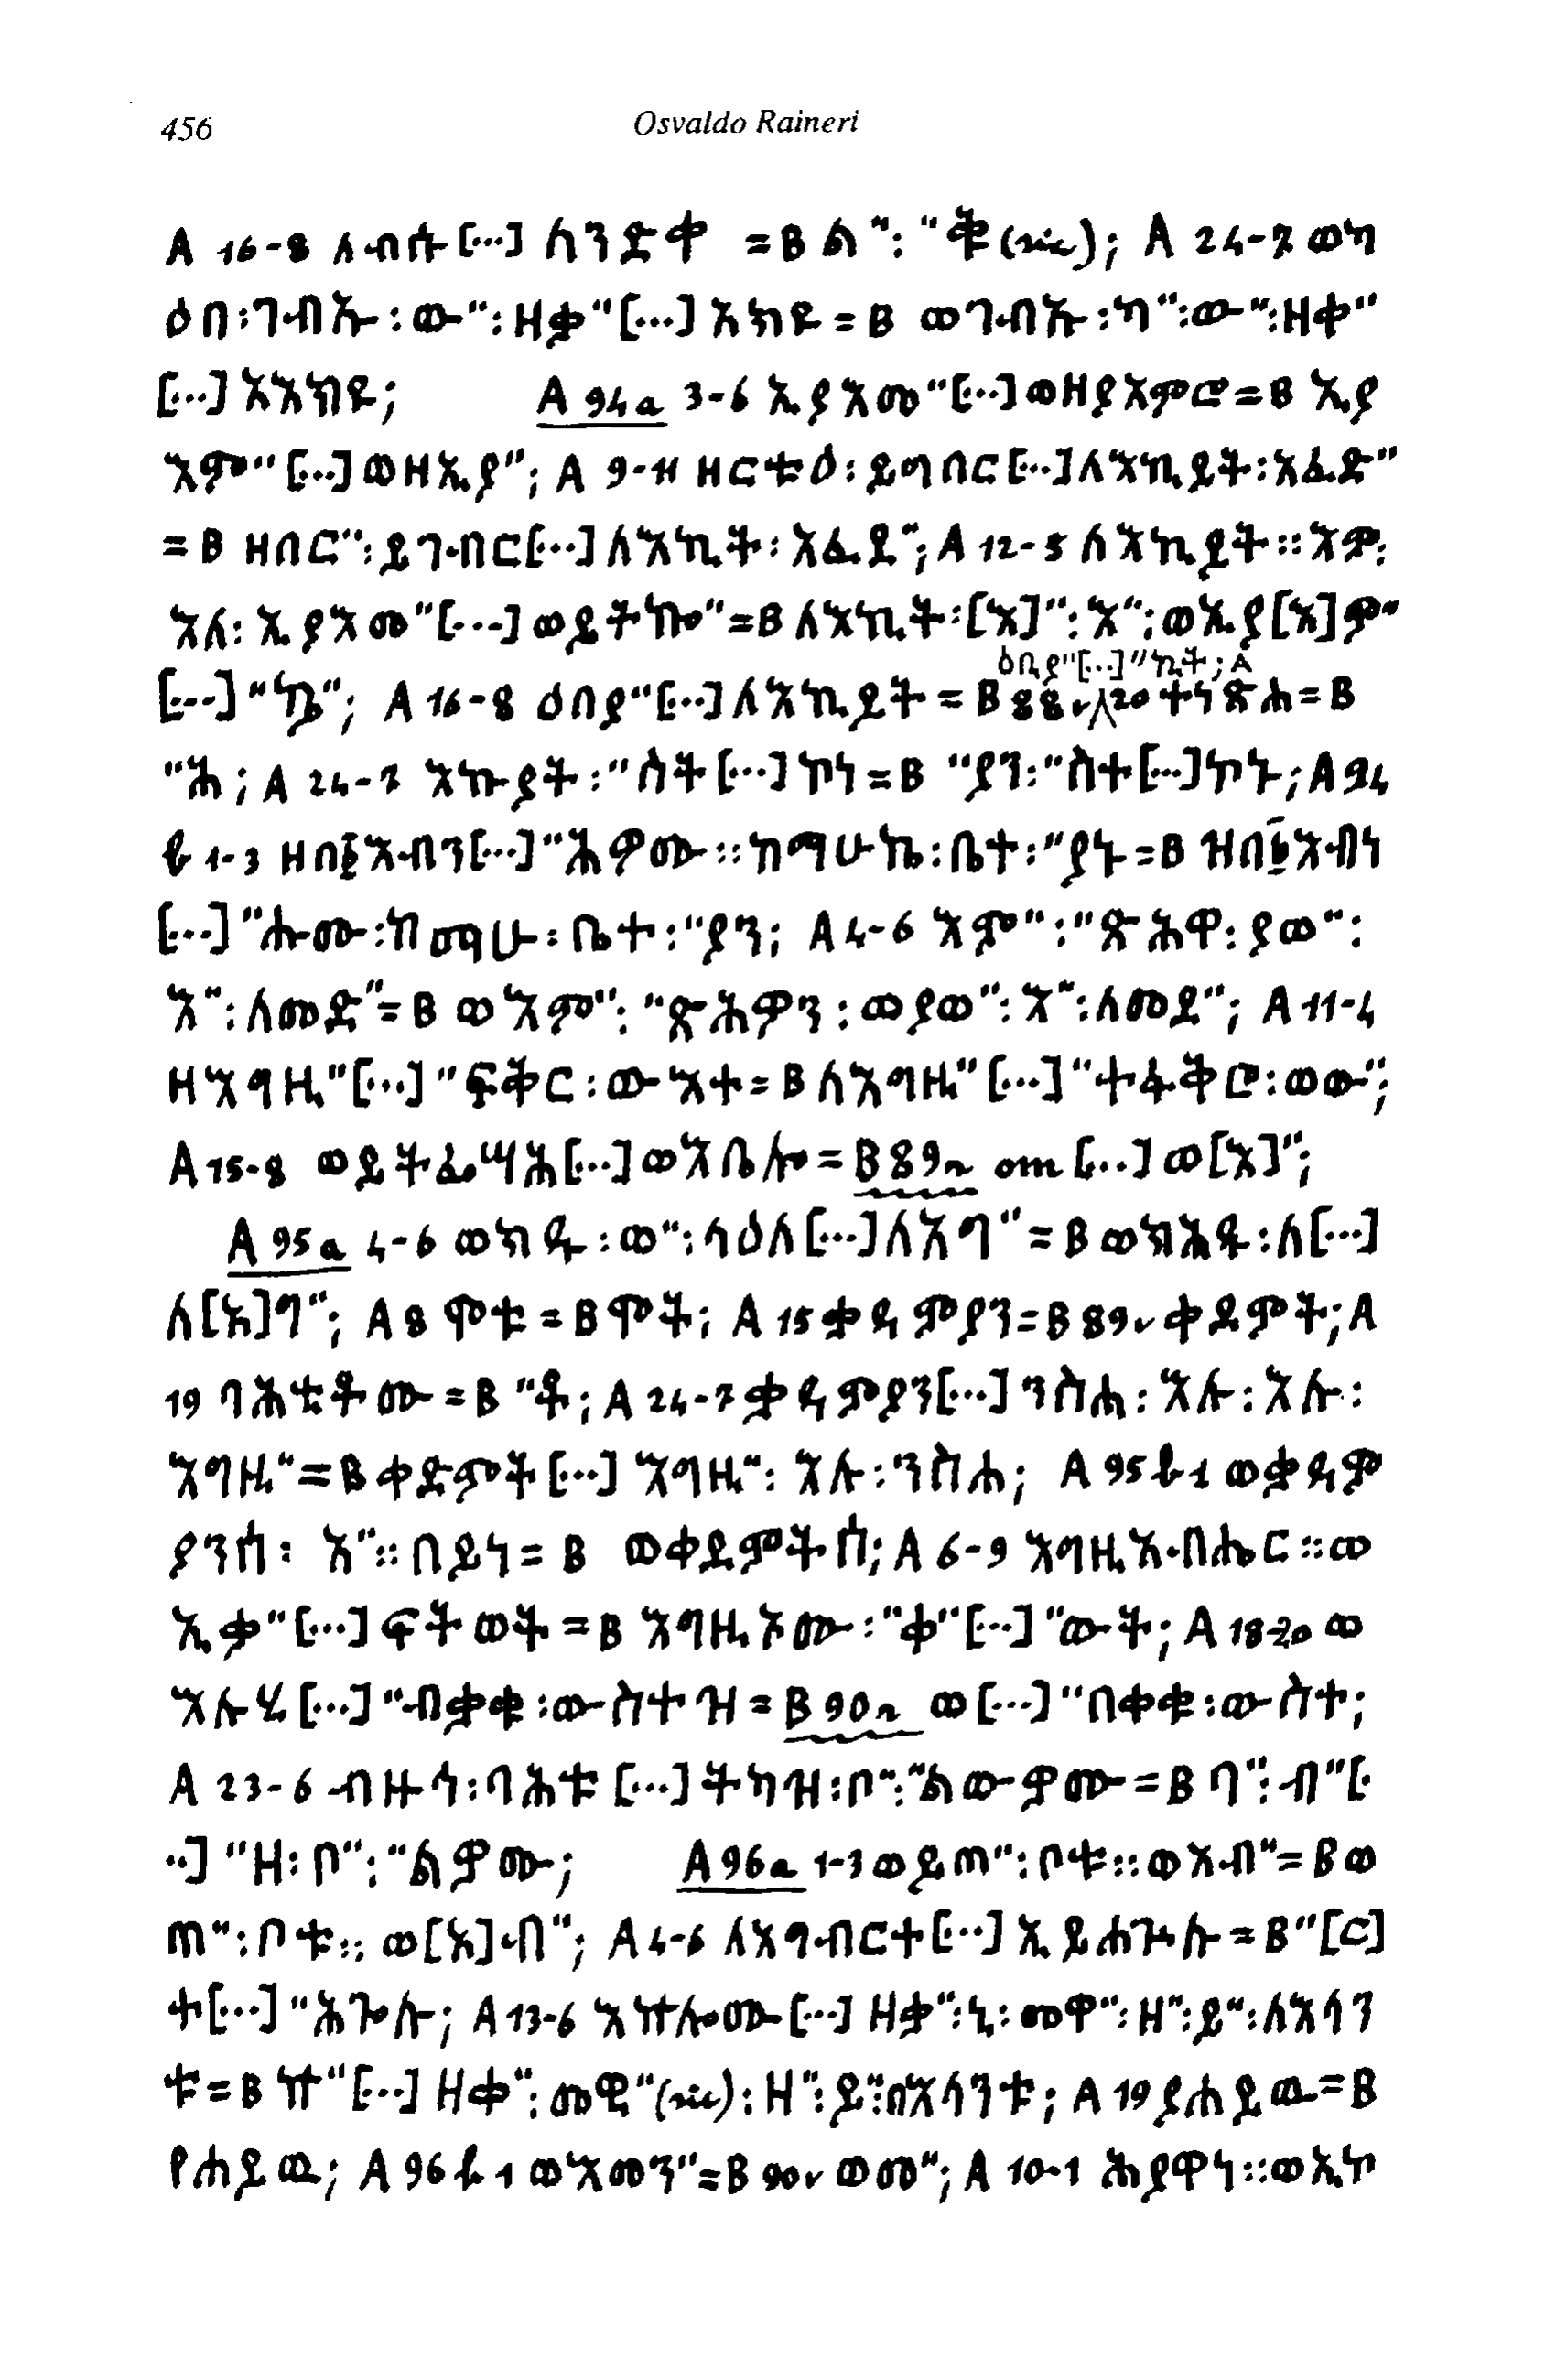 456
Osvaldo Raineri
A 16-8 ለብሱ [...] ሰንድቀ = B ል": "ቅ (sic); A 24-7 ወካ
ዕበ፡ገብኡ፡ው"፡ዘቃ"[...] አክዩ = B ወገብኡ፡ካ"፡ው"፡ዘቀ"
[...] እአክዩ; A 94a 3-6 ኢያእመ"[...]ወዘያእምሮ = B ኢያ
እም"[...]ወዘኢያ"; A 9-11 ዘርቱዕ፡ይግበር[...]ለእኪይት፡እፈድ"
= B ዘበር"፡ይገብር[...]ለእኪት፡እፈደ"; A 12-5 ለእኪይት፡፡እም፡
እለ፡ኢያእመ"[...]ወይትኰ" = B ለእኪት፡[እ]"፡እ"፡ወኢያ[እ]ም"
ዕቢያ"[...]"ኪት; A
[...]"ኴ"; A 16-8 ዕበያ"[...]ለእኪይት = B 88v 20 ተነጽሐ = B
"ሕ; A 24-7 እኩያት፡"ስት[...]ኮነ = B "ያን፡"ስተ[...]ኮኑ; A 94
b 1-3 ዘበ፩እብን[...]"ሕዎሙ፡፡ከማሁኬ፡ቤተ፡"ያኑ = B ዝበ፩እብነ
[...]"ሑሙ፡ከማሁ፡ቤተ፡"ያን; A 4-6 እም"፡"ጽሕዋ፡ያወ"፡
እ"፡ለመድ" = B ወእም"፡"ጽሕዎን፡ወያወ"፡እ"፡ለመደ"; A 11-4
ዘእግዚ"[...]"ፍቅር፡ውእተ = B ለእግዚ"[...]"ተፋቅሮ፡ወው";
A 15-8 ወይትፌሣሕ[...]ወእቤሎ = B 89r om [...] ወ[እ]";
A 95a 4-6 ወክዱ፡ወ"፡ላዕለ[...]ለእግ" = B ወክሕዱ፡ለ[...]
ለ[እ]ግ"; A 8 ሞቱ = B ሞት; A 15 ቃዴምያን = B 89v ቀደምት; A
19 ባሕቲቶሙ = B "ቶ; A 24-7 ቃዴምያን[...]ንስሐ፡እሉ፡እሉ፡
እግዚ" = B ቀድምት[...]እግዚ"፡እሉ፡ንስሐ; A 95b 1 ወቃዴም
ያንሰ፡እ"፡፡በይነ = B ወቀደምትሰ; A 6-9 እግዚአብሔር፡፡ወ
ኢቃ"[...]ፍትወት = B እግዚኦሙ፡"ቀ"[...]"ውት; A 18-20 ወ
እሉሂ[...]"ብቃቁ፡ውስተዝ = B 90r ወ[...]"በቀቁ፡ውስተ;
A 23-6 ብዙኅ፡ባሕቱ[...]ትካዝ፡ቦ"፡"ልውዎሙ = B ባ"፡ብ"[.
..]"ዘ፡ቦ"፡"ልዎሙ; A 96a 1-3 ወይጠ"፡ቦቱ፡፡ወእብ" = B ወ
ጠ"፡ቦቱ፡፡ወ[እ]ብ"; A 4-6 ለእግብርተ[...]ኢይሐጐሉ = B "[ር]
ተ[...]"ሕጐሉ; A 13-6 እኍሎሙ[...]ዘቃ"፡ኒ፡መዋ"፡ዘ"፡ይ"፡ለእሳን
ቱ = B ኵ"[...]ዘቀ"፡መዊ"(sic)፡ዘ"፡ይ"፡በእሳንቱ; A 19 ያሐይዉ = B
የሐይዉ; A 96b 1 ወእመን" = B 90v ወመ"; A 10-1 ሕያዋነ፡፡ወኢኮ